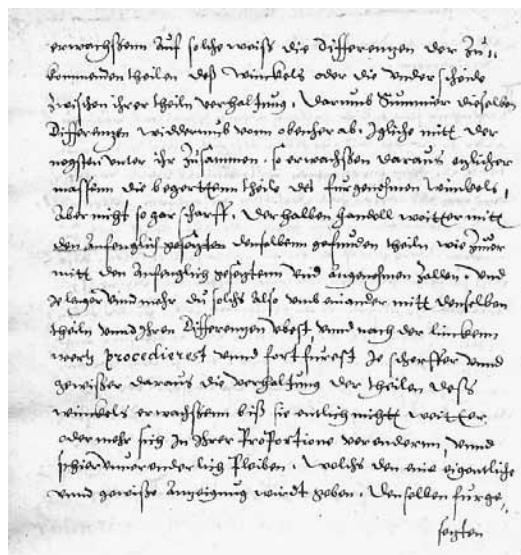 erwachssenn Auf solche weiss die Differenzen der Zu,,
kommenden theilen dess winckels oder die underscheide
zwischen ihrer theiln verhaltung. Darumb Summier dieselben
Differenzen widderumb vonn obenher ab, Igliche mitt der
negsten unter ihr zusammen. so erwachssen daraus etzlicher
massenn die begertten theile des furgenohmen winckels,
Aber nicht so gar scharff. derhalben handell weitter mitt
den Anfenglich gesagten denselbenn gefunden theiln wie zuvor
mitt den Anfenglich gesagtenn und Angenohmen Zallen. und
Je lenger unnd mehr du solchs also umb einander mitt denselben
theiln unnd Ihren Differenzen ubest unnd nach der lincken
wertz procedierest unnd fort fürest Je scherffer unnd
gewisser daraus die verhaltung der theilen dess
winckels erwachssenn biss sie entlich nichtt weitter
oder mehr sich In Ihrer Proportione veranderrn, unnd
schier unveranderlich Pleiben. welchs den eine eigentliche
unnd gewisse Anzeigung wirdt geben. denselben furge,
setzten